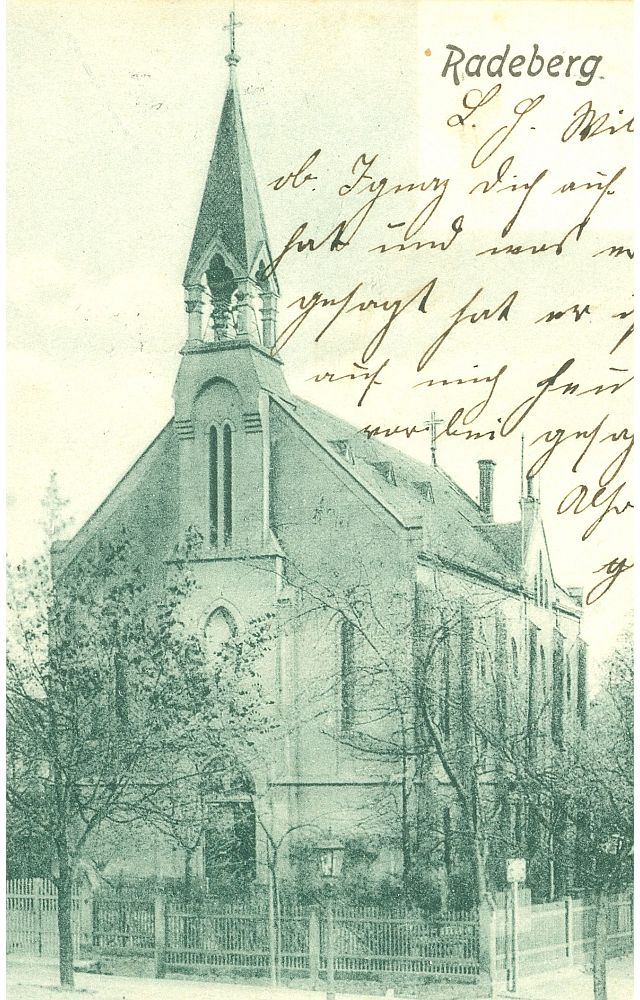 Radeberg.
L. J. Wil
ob. Ignaz Dich auf
hat und was er
gesagt hat er i
auf mich heu
vorbei gesag
Also
g